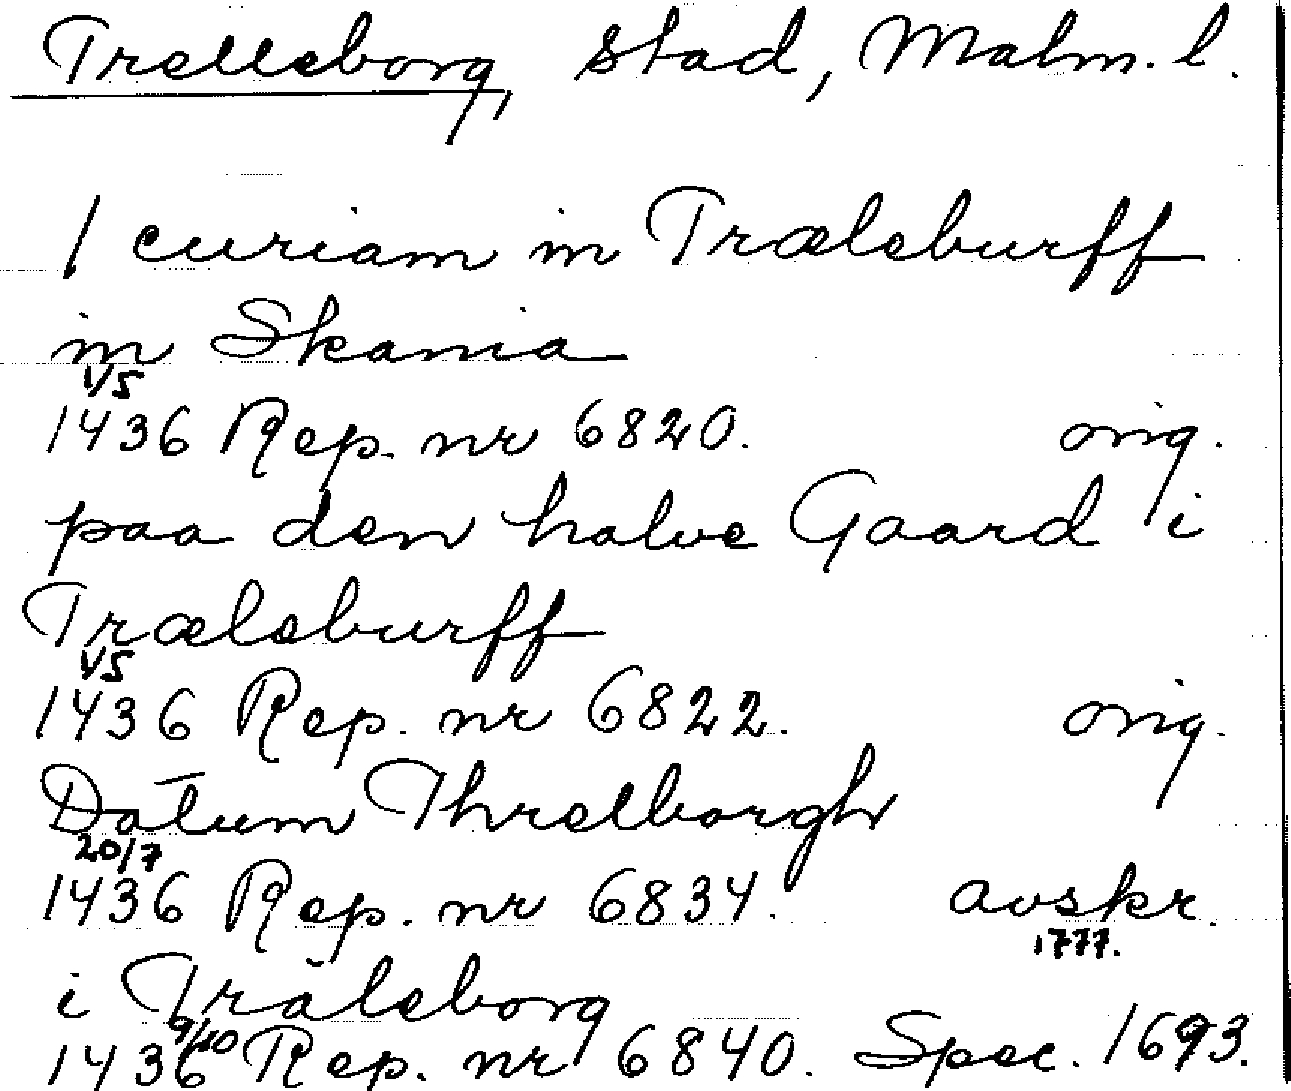 Trelleborg, stad, Malm. l.
1 curiam in Træleburff
in Skania
1/5
1436 Rep. nr 6820. orig.
paa den halve Gaard i
Træleburff
1/5
1436 Rep. nr 6822. orig.
Datum Threlborgh
20/7
1436 Rep. nr 6834. avskr.
1777.
i Träleborg
9/10
1436 Rep. nr 6840. Spec. 1693.